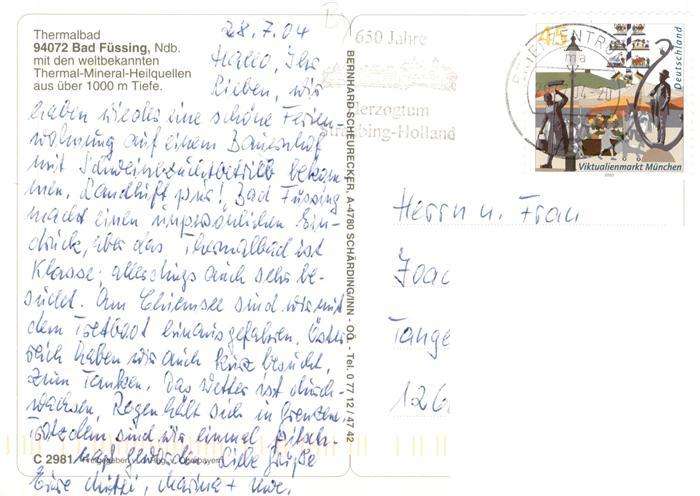 Thermalbad
94072 Bad Füssing, Ndb.
mit den weltbekannten
Thermal-Mineral-Heilquellen
aus über 1000 m Tiefe.
28.7.04
Hallo, Ihr
Lieben, wir
haben wieder eine schöne Ferien-
wohnung auf einem Bauernhof
mit Schweinezuchtbetrieb bekom-
men, Landluft pur! Bad Füssing
macht einen unpersönlichen Ein-
druck, aber das Thermalbad ist
Klasse; allerdings auch sehr be-
sucht. Am Chiemsee sind wir mit
dem Tretboot hinausgefahren. Öster-
reich haben wir auch kurz besucht,
zum Tanken. Das Wetter ist durch-
wachsen, Regen hält sich in Grenzen
Trotzdem sind wir einmal pitsch-
naß geworden. Liebe Grüße
Eure
C 2981
BERNHARD SCHEURECKER, A-4780 SCHÄRDING/INN - OÖ. - Tel. 0 77 12 / 47 42
650 Jahre
Herzogtum
Straubing-Holland
BRIEFZENTRUM
45
Deutschland
Viktualienmarkt München
Herrn u. Frau
Joac
Tange
126